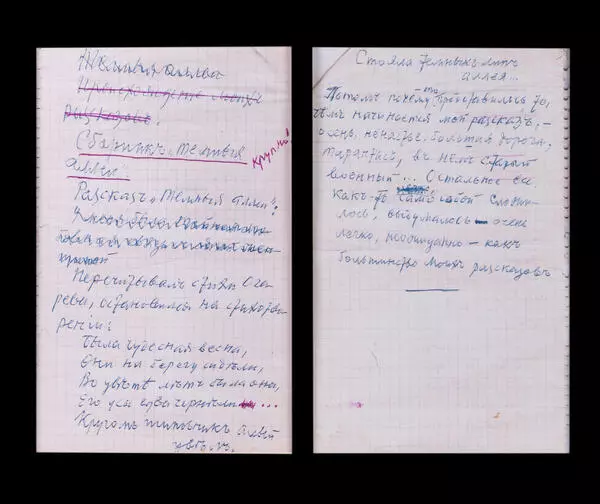 Темныя аллеи
Происхожденiе моихъ
разсказовъ.
Сборникъ „Темныя
аллеи“.
Круп.но
Разсказъ „Темныя аллеи“:
Перечитывалъ стихи Ога-
рева, остановился на стихотво-
ренiи:
Была чудесная весна,
Они на берегу сидѣли,
Во цвѣтѣ лѣтъ была она,
Его усы едва чернѣли ...
Кругомъ шиповникъ алый
цвѣлъ.
Стояла темныхъ липъ
аллея...
Потомъ почему то представилось то,
чѣмъ начинается мой разсказъ, —
осень, ненастье, большая дорога,
тарантасъ, въ немъ старый
военный... Остальное все
какъ-то само собой сложи-
лось, выдумалось — очень
легко, неожиданно — какъ
большинство моихъ разсказовъ